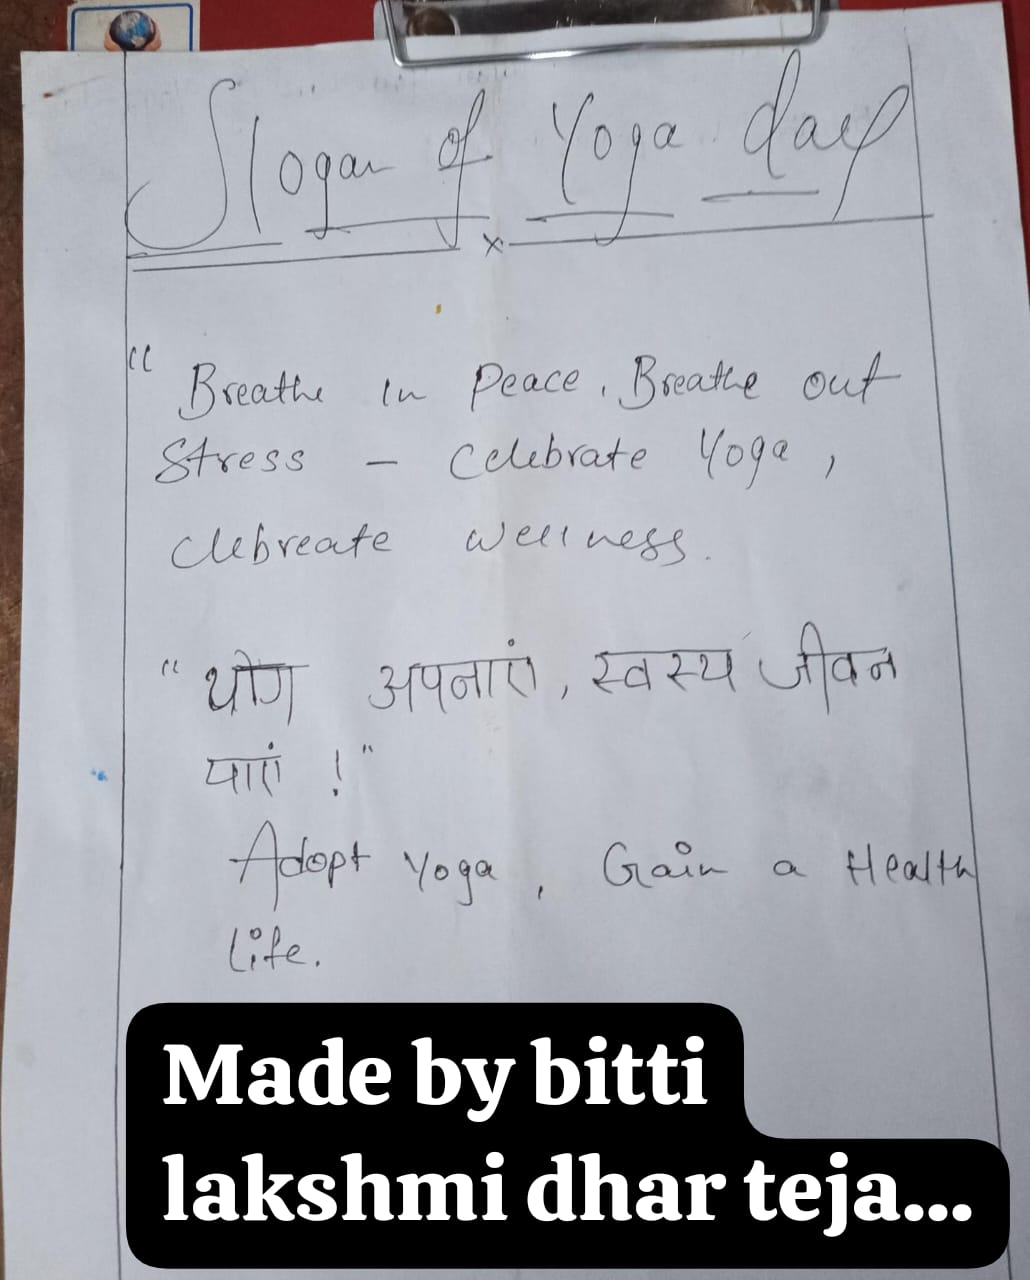 Slogan of Yoga day
x
"Breathe in Peace, Breathe out
Stress – Celebrate Yoga,
Clebreate wellness.
"योग अपनाएं, स्वस्थ जीवन
पाएं !"
Adopt Yoga, Gain a Health
Life.
Made by bitti
lakshmi dhar teja...